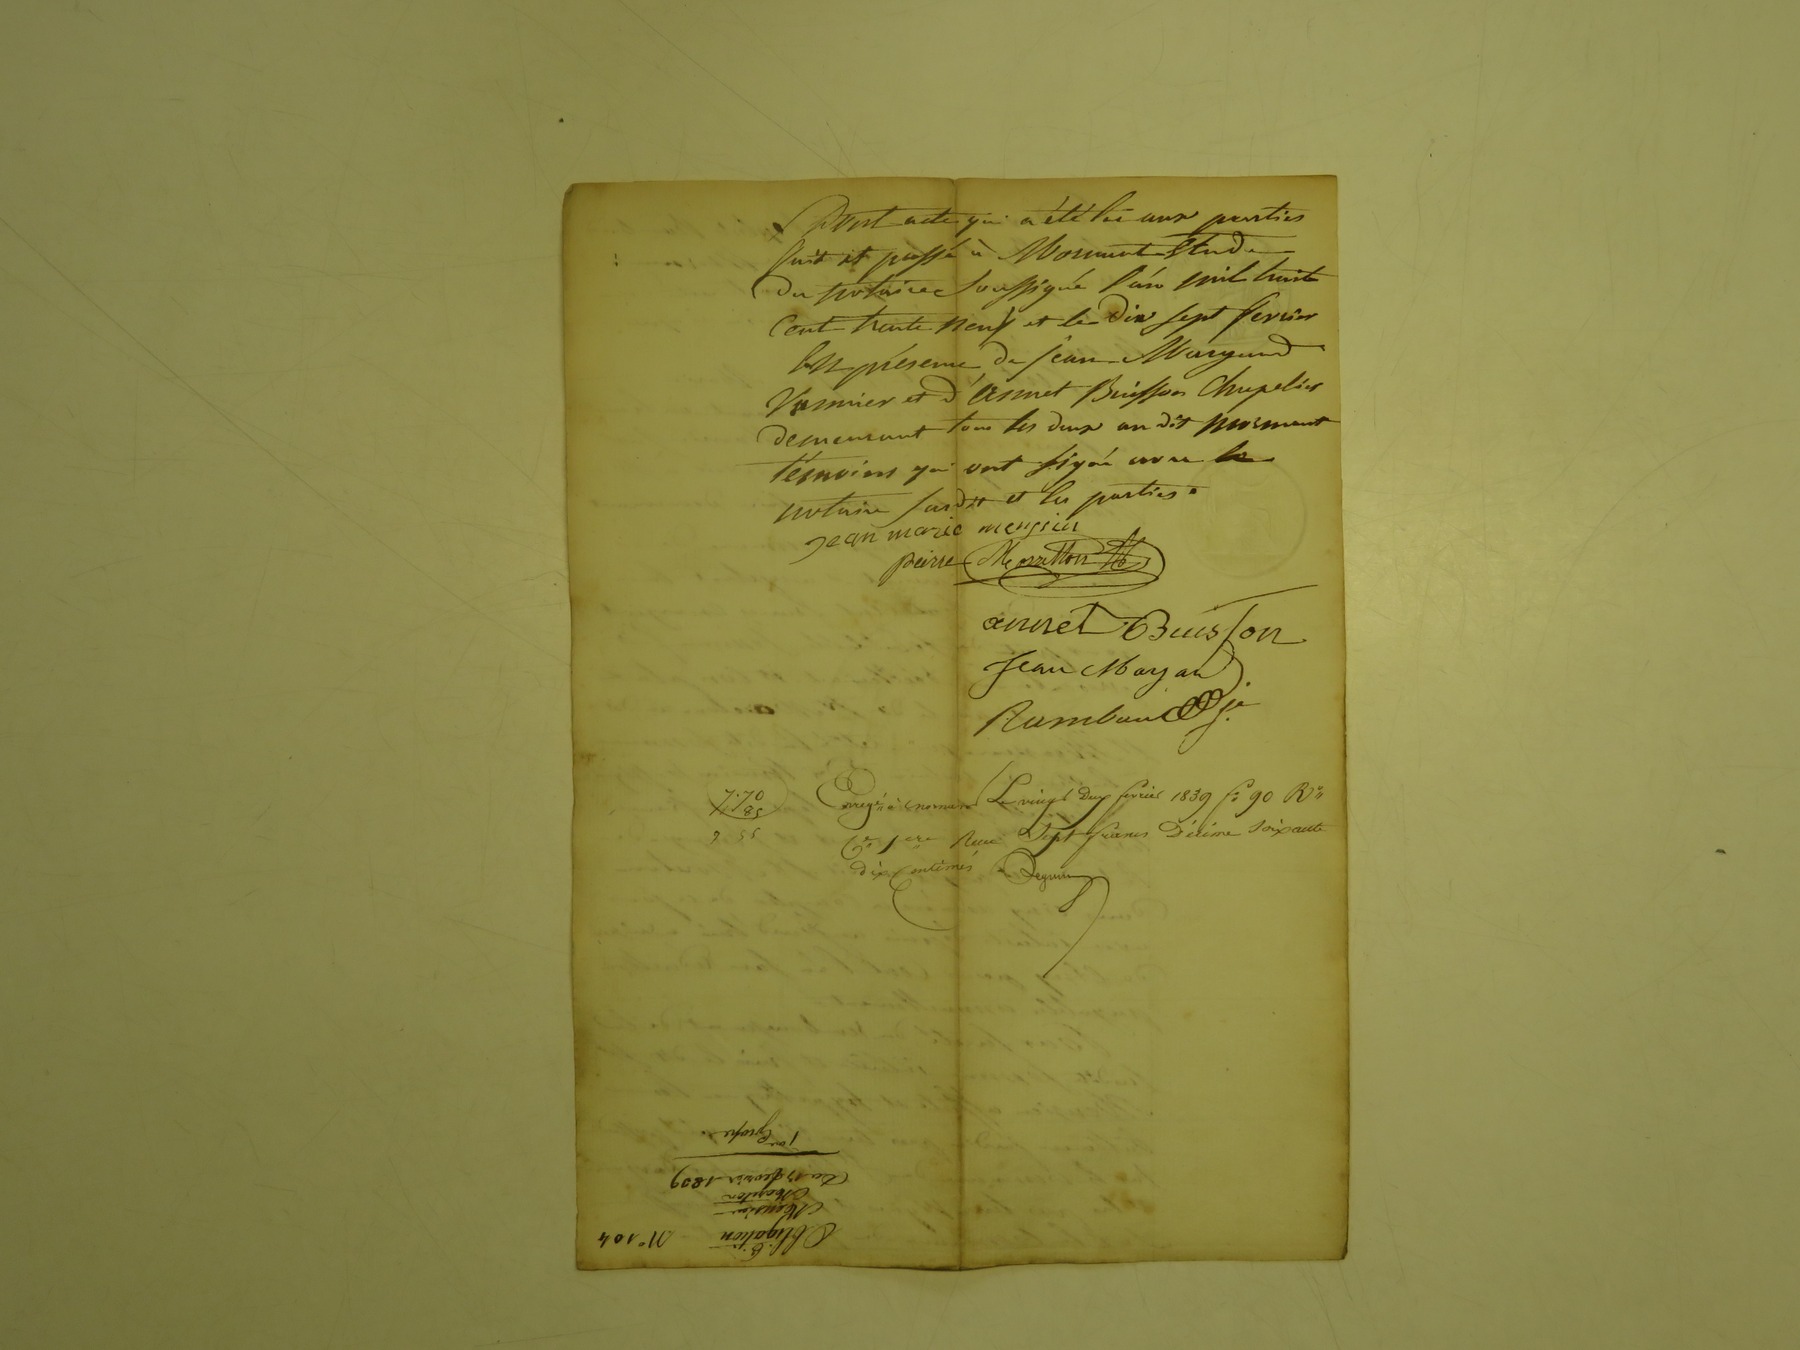 Dont acte qui a été lu aux parties
fait et passé à Mornant Etude
du notaire soussigné l'an mil huit
Cent trente neuf et le dix sept fevrier
En présence de Jean Mayand
Vannier et d'Annet Buisson Chapelier
demeurant tous les deux au dit Mornant
témoins qui ont signé avec le
notaire susdit et les parties.
jean marie mengien
peirre
annet Buisson
Jean Mayand
Rambaud
7.70
85
Enregé à mornant Le vingt Deux fevrier 1839 fo 90 Ro
Ce 1ere Reçu Sept francs Décime Soixante
dix Centimes
No 104
Obligation
Du 17 fevrier 1839
1ere Grosse